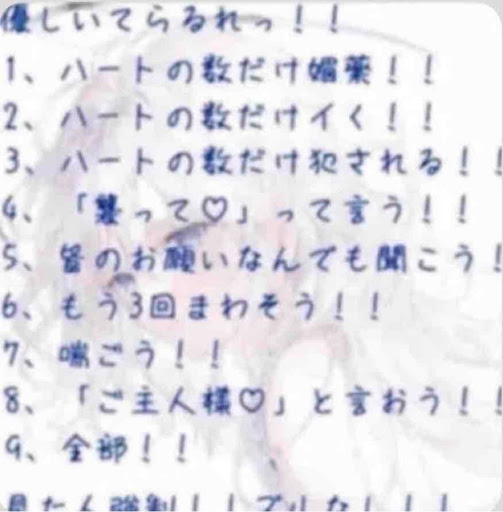 優しいてらるれっ！！
1、ハートの数だけ媚薬！！
2、ハートの数だけイく！！
3、ハートの数だけ犯される！！
4、「襲って♡」って言う！！
5、皆のお願いなんでも聞こう！
6、もう3回まわそう！！
7、喘ごう！！
8、「ご主人様♡」と言おう！！
9、全部！！
見たん強制！！ズルな！！！